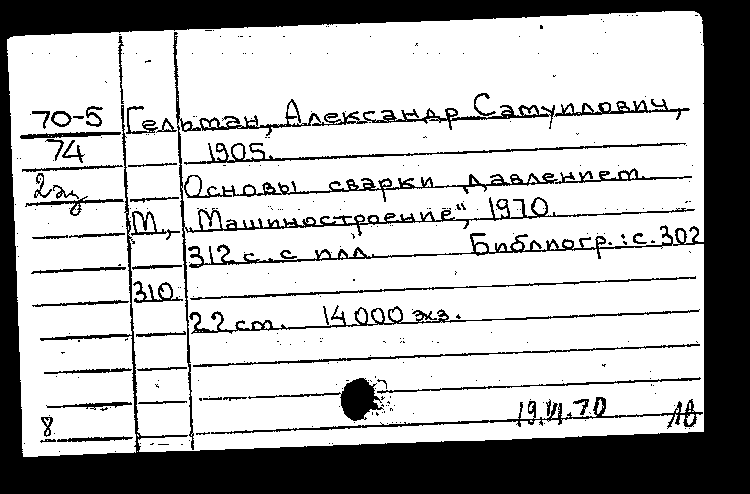 70-5 Гельман, Александр Самуилович,
74 1905.
2 экз Основы сварки давлением
М., "Машиностроение", 1970.
312 с. с илл. Библиогр.: с. 302
310.
22 см. 14000 экз.
19.VI.70 ЛВ
8